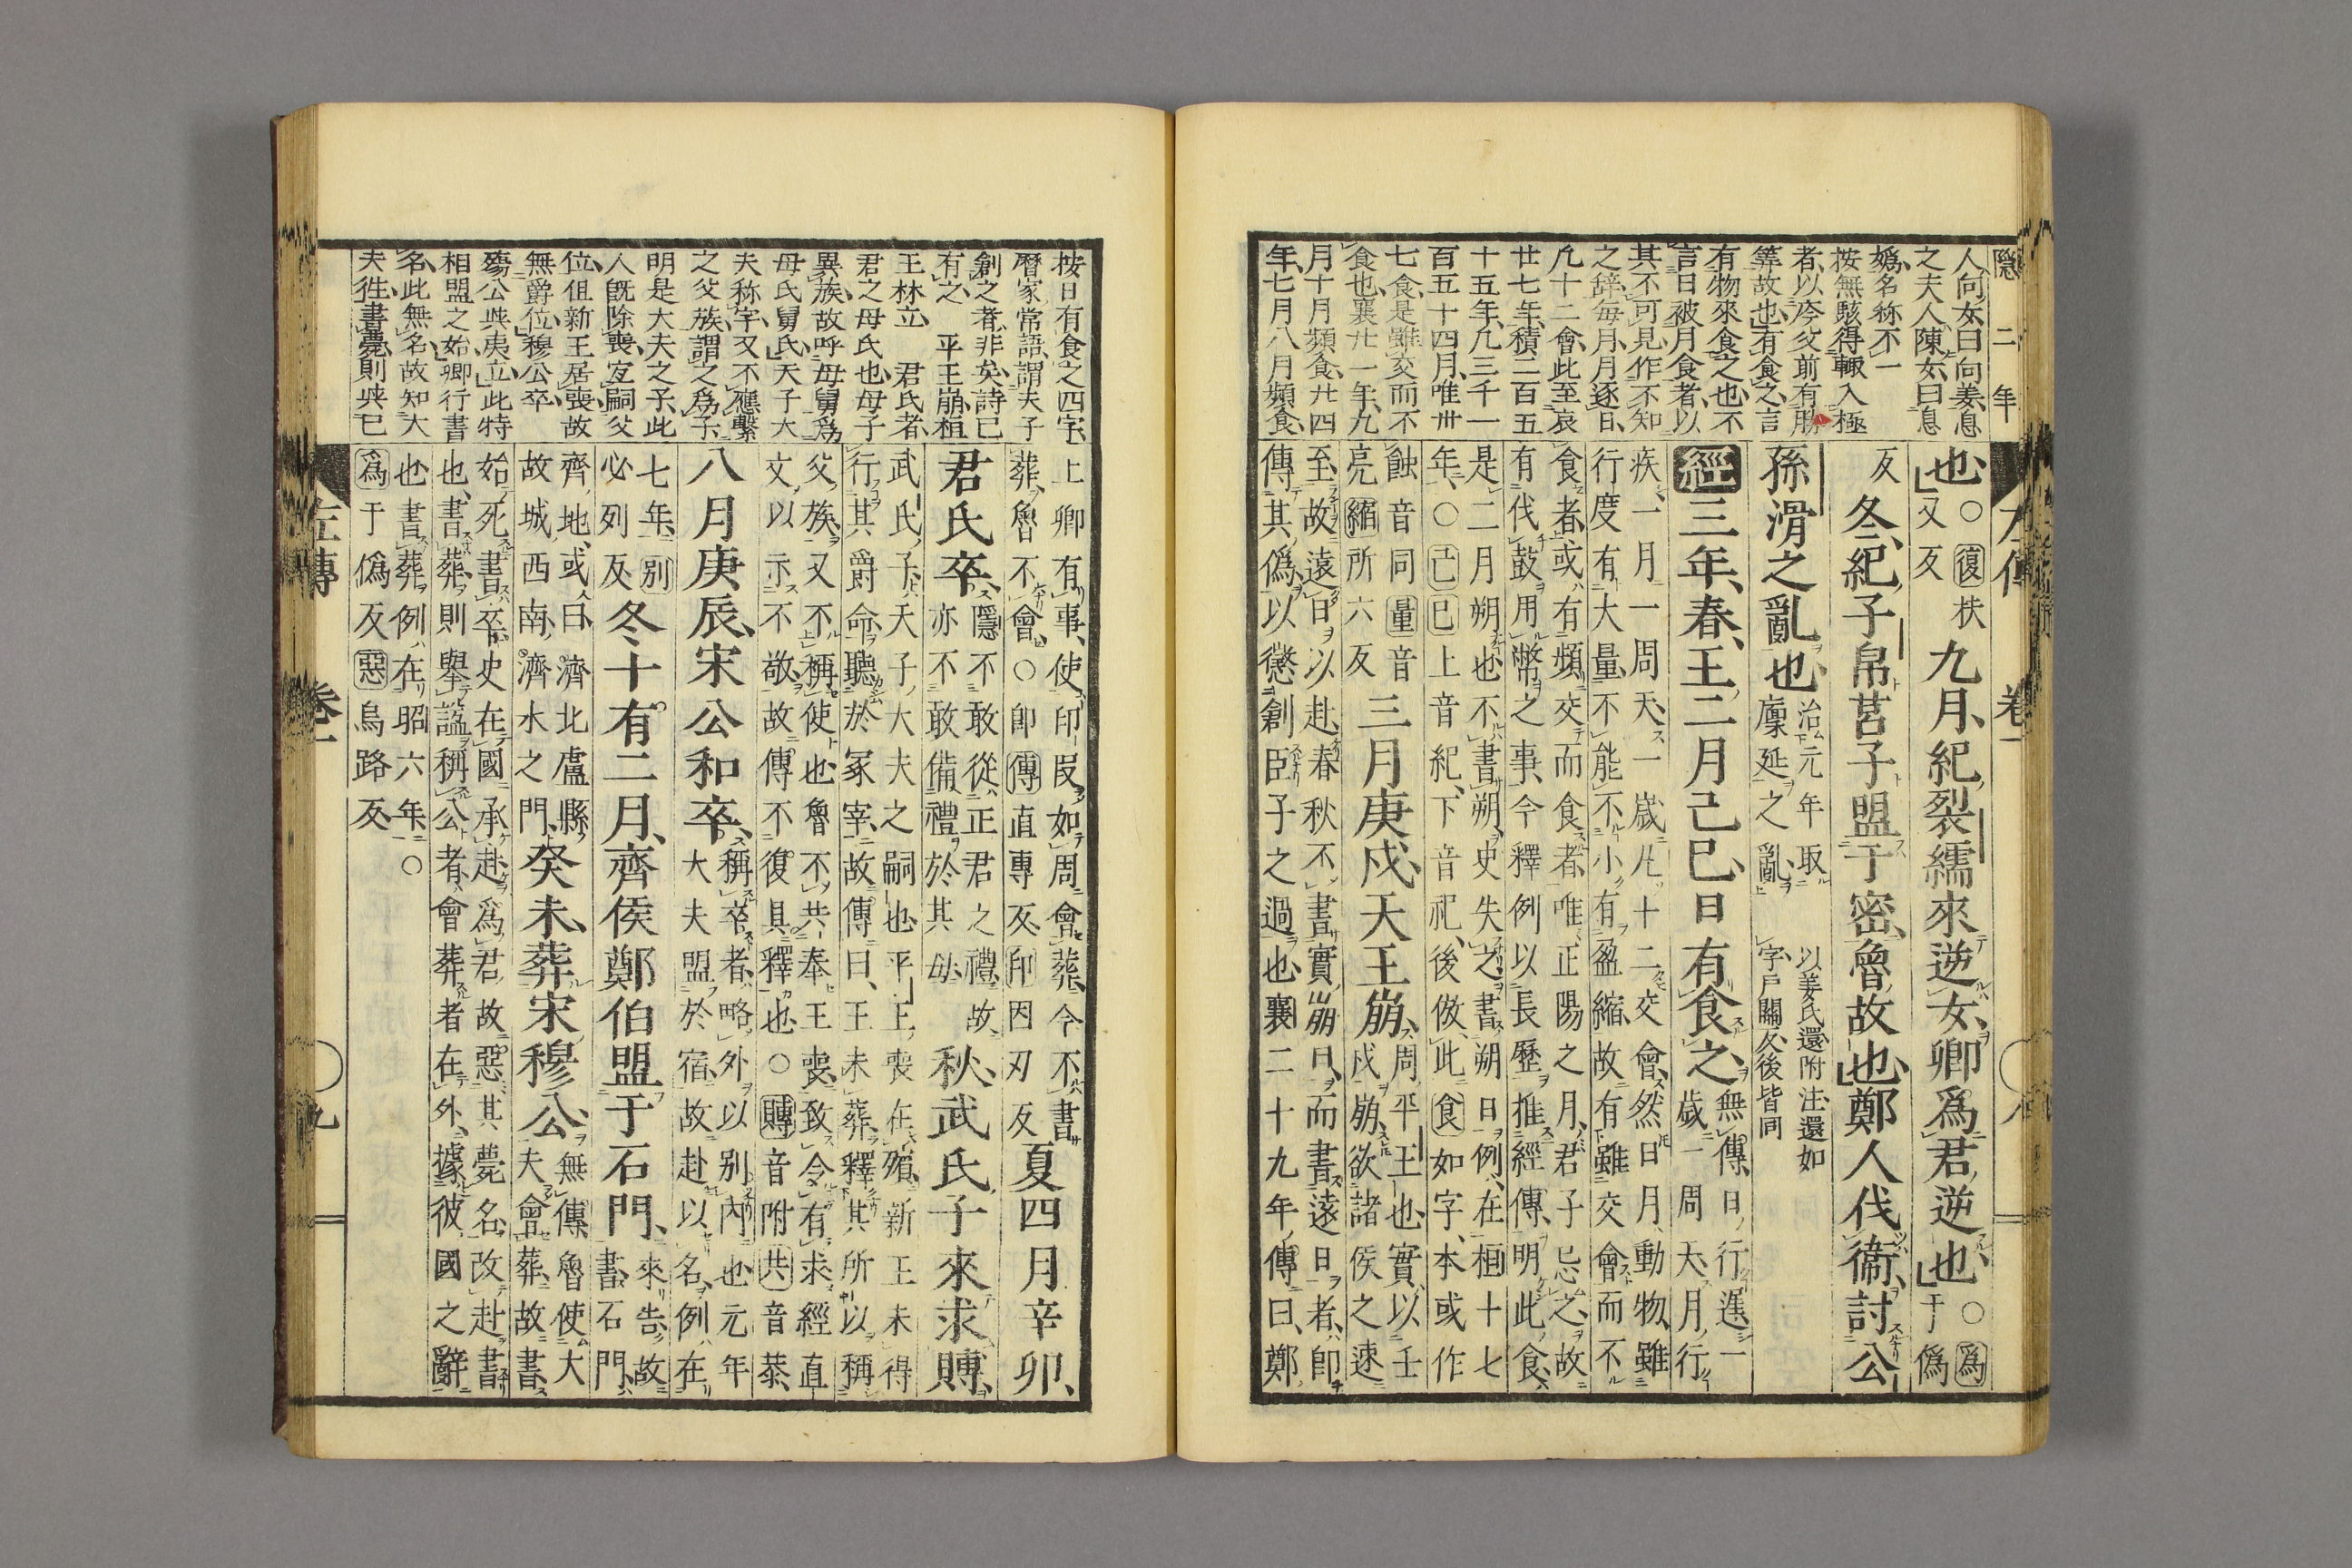 隱 二年
人向女曰向姜息
之夫人陳女曰息
嬀名称不一
按無駭得輙入極
者以夸父前有勝
筭故也有食之言
有物來食之也不
言日被月食者以
其不可見作不知
之辞毎月月逐日
凡十二會此至哀
廿七年積二百五
十五年凡三千一
百五十四月唯卅
七食是雖交而不
食也襄廿一年九
月十月頻食廿四
年七月八月頻食
左傳 卷一 八
也○復扶又反九月紀裂繻來逆女卿爲君逆也○爲于僞
反冬紀子帛莒子盟于密魯故也鄭人伐衞討公
孫滑之亂也治元年取廩延之亂 以姜氏還附注還如字戶關反後皆同
經三年春王二月己巳日有食之無傳日行遲一歲一周天月行
疾一月一周天一歲凡十二交會然日月動物雖
行度有大量不能不小有盈縮故有雖交會而不
食者或有頻交而食者唯正陽之月君子忌之故
有伐鼓用幣之事今釋例以長歷推經傳明此食
是二月朔也不書朔史失之書朔日例在桓十七
年○己巳上音紀下音祀後倣此食如字本或作
蝕音同量音亮縮所六反三月庚戌天王崩周平王也實以壬戌崩欲諸侯之速
至故遠日以赴春秋不書實崩日而書遠日者即
傳其僞以懲創臣子之過也襄二十九年傳曰鄭
按日有食之四字
曆家常語謂夫子
創之者非矣詩已
有之 平王崩桓
王林立 君氏者
君之母氏也母子
異族故呼母舅爲
母氏舅氏天子大
夫称字又不應繫
之父族謂之爲子
明是大夫之子此
人旣除喪宜嗣父
位但新王居喪故
無爵位穆公卒
殤公與夷立此特
相盟之始卿行書
名此無名故知大
夫徃書薨則與已
上卿有事使印段如周會葬今不書
葬魯不會○卽傳直專反印因刃反夏四月辛卯
君氏卒隱不敢從正君之禮故亦不敢備禮於其母秋武氏子來求賻
武氏子天子大夫之嗣也平王喪在殯新王未得
行其爵命聽於冢宰故傳曰王未葬釋其所以稱
父族又不稱使也魯不共奉王喪致令有求經直
文以示不敬故傳不復具釋也○賻音附共音恭
八月庚辰宋公和卒稱卒者略外以别內也元年大夫盟於宿故赴以名例在
七年别必列反冬十有二月齊侯鄭伯盟于石門來告故書石門
齊地或曰濟北盧縣故城西南濟水之門癸未葬宋穆公無傳魯使大夫會葬故書
始死書卒史在國承赴爲君故惡其薨名改赴書
也書葬則舉謚稱公者會葬者在外據彼國之辭
也書葬例在昭六年○
爲于僞反惡烏路反
左傳 卷一 九